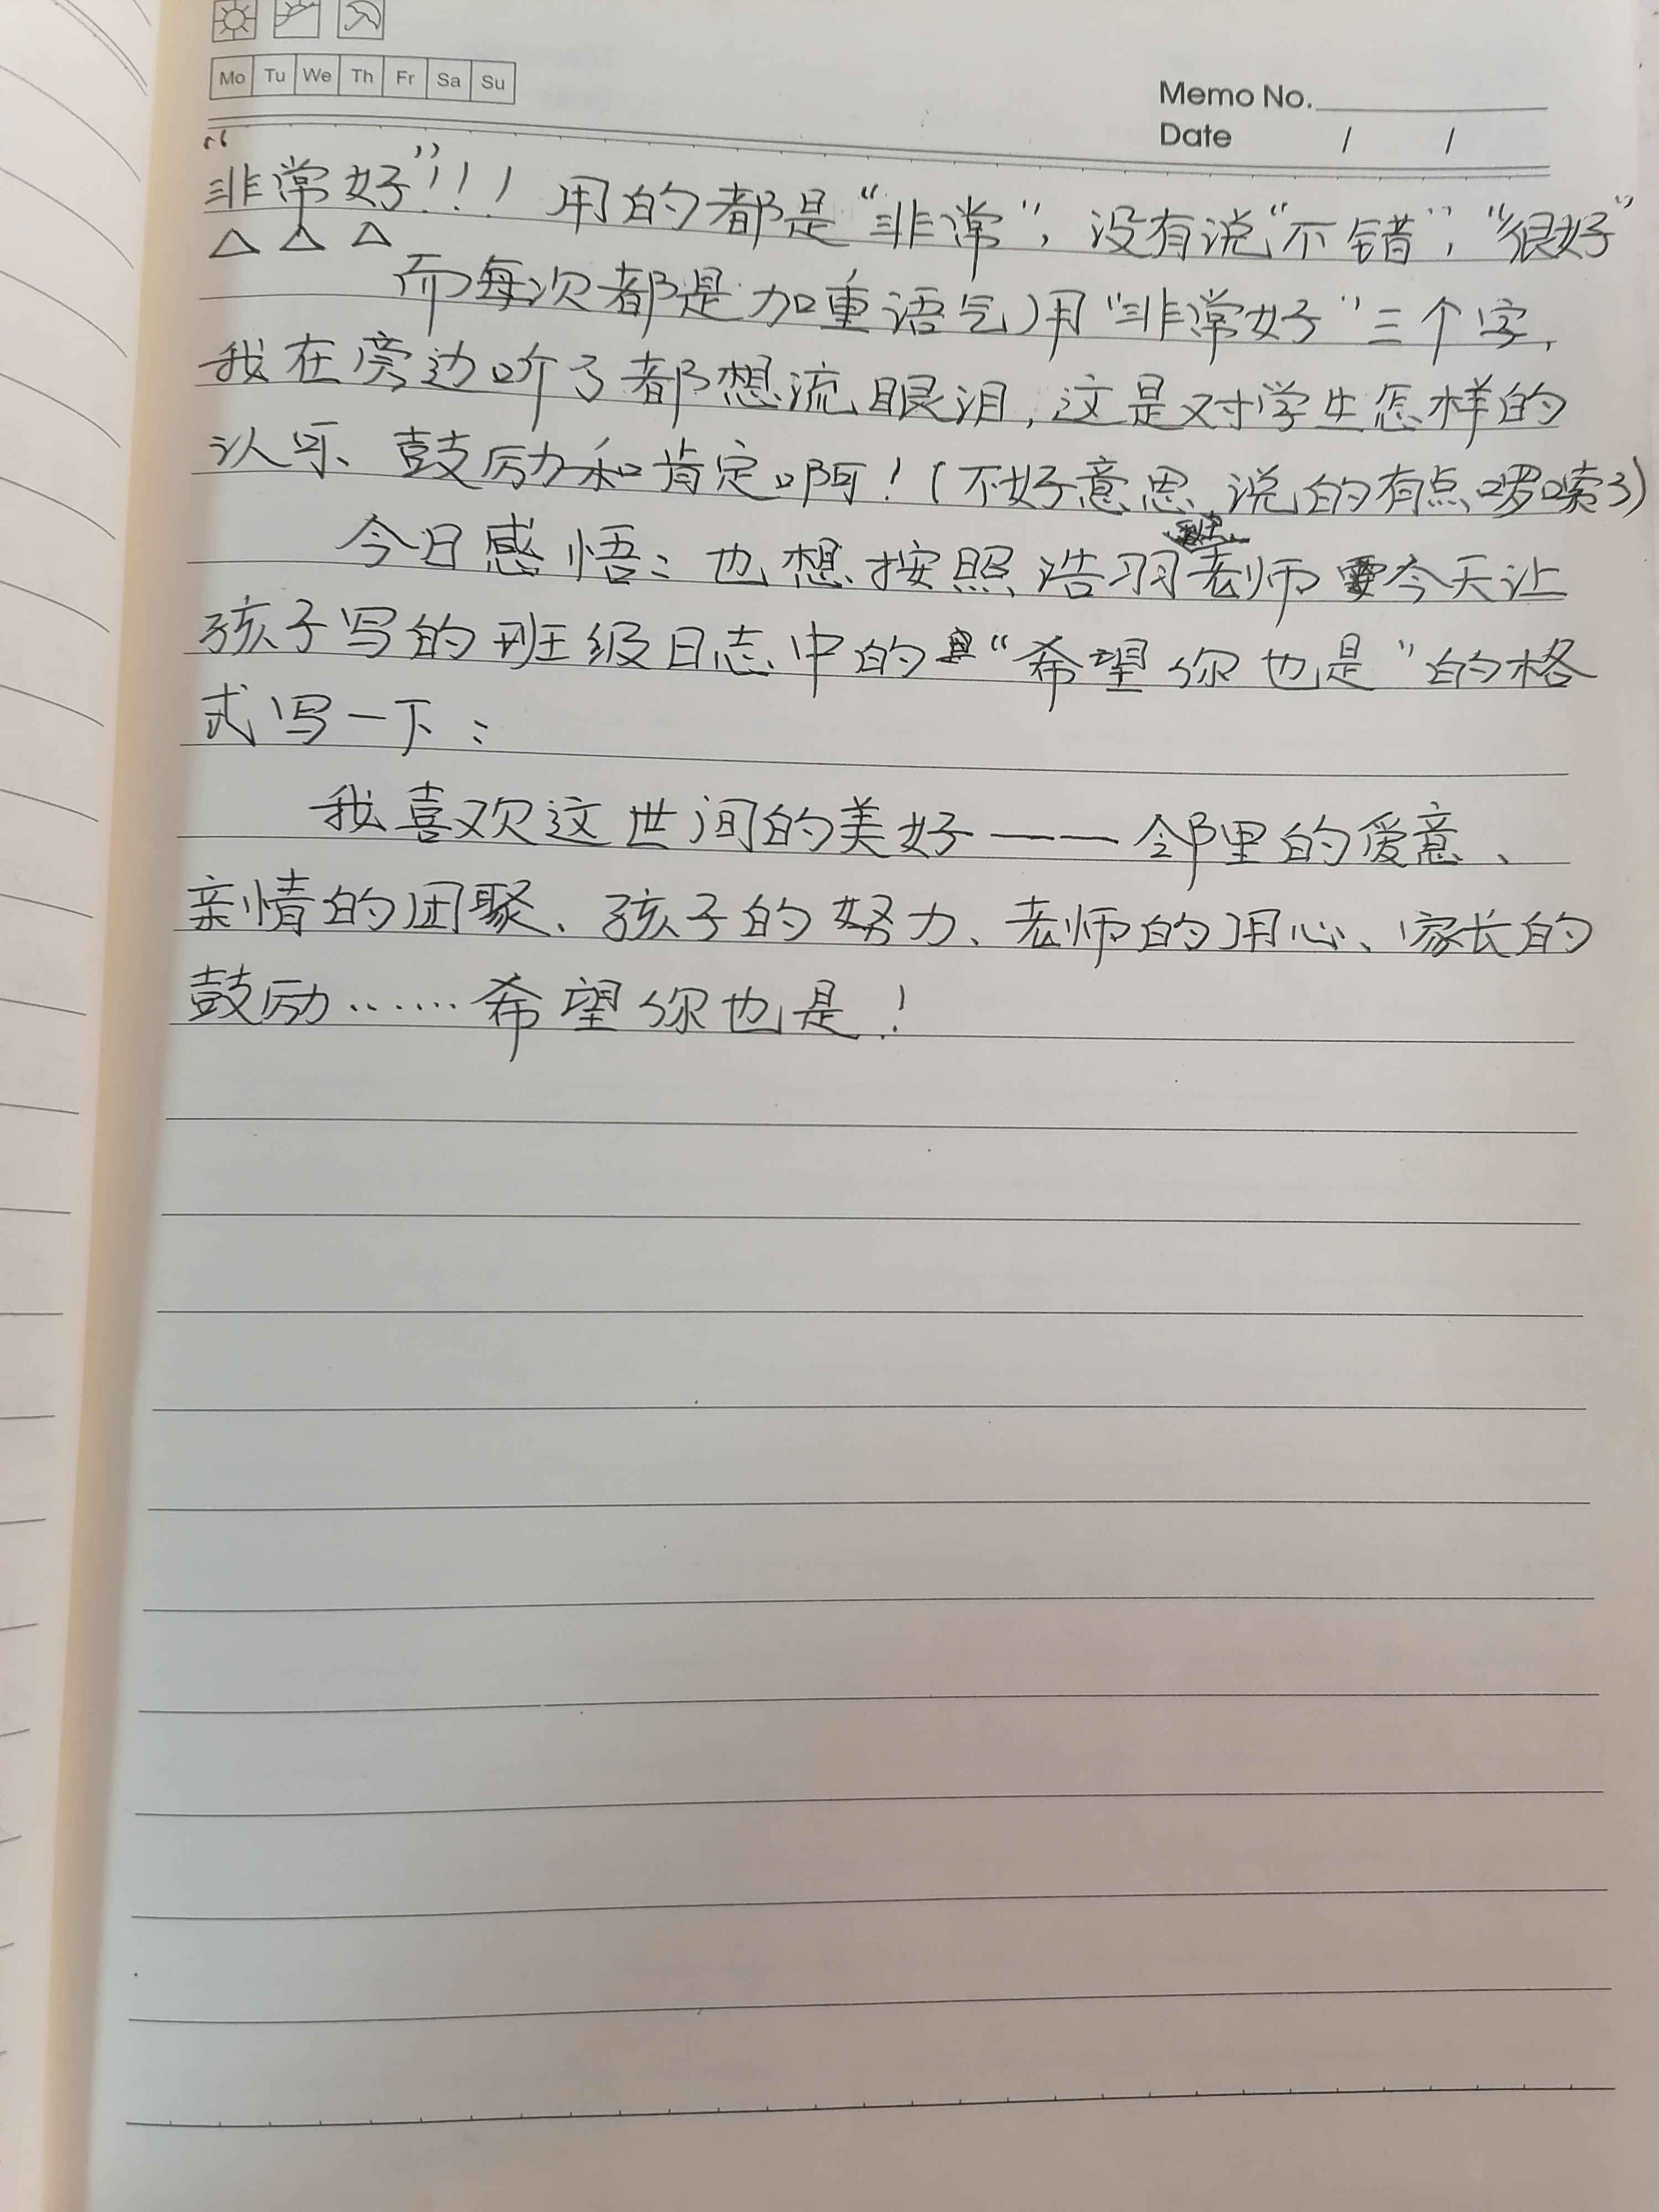 Mo Tu We Th Fr Sa Su
Memo No.
Date / /
“非常好”!!! 用的都是“非常”,没有说“不错”,“很好”
而每次都是加重语气用“非常好”三个字,
我在旁边听了都想流眼泪,这是对学生怎样的
认可、鼓励和肯定啊!(不好意思,说的有点啰嗦了)
今日感悟:也想按照浩羽老师今天让
孩子写的班级日志中的“希望你也是”的格
式写一下:
我喜欢这世间的美好——邻里的爱意、
亲情的团聚、孩子的努力、老师的用心、家长的
鼓励……希望你也是!